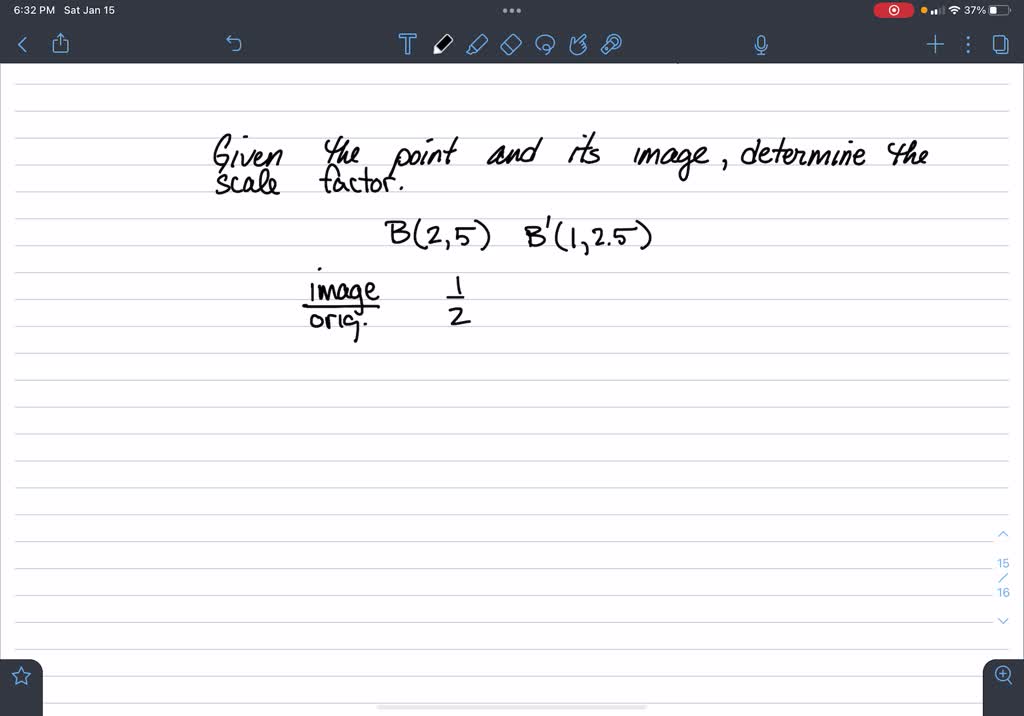 6:32 PM Sat Jan 15
37%
T
Given the point and its image, determine the
scale factor.
B(2,5) B'(1,2.5)
image 1
orig. 2
15
/
16